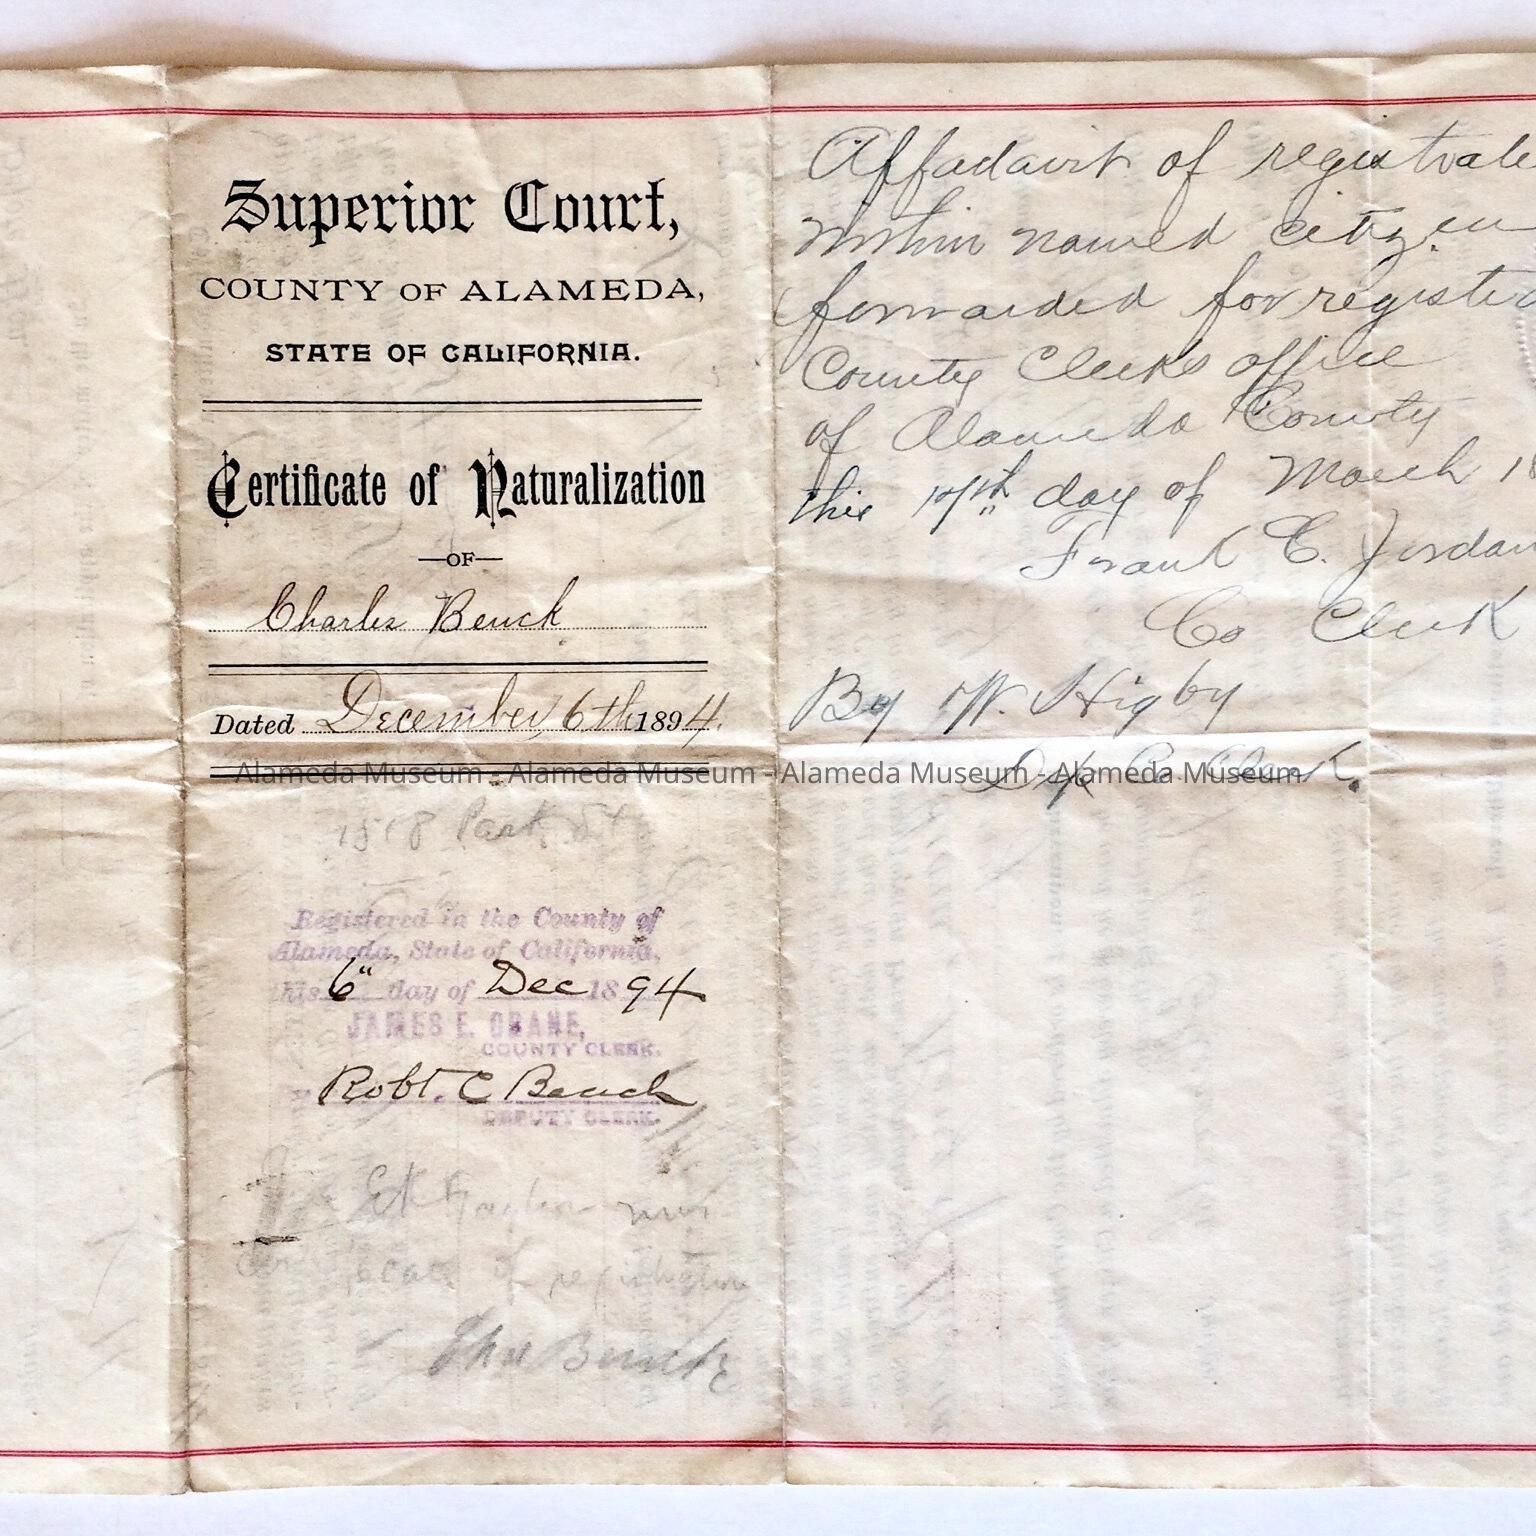 Superior Court,
COUNTY OF ALAMEDA,
STATE OF CALIFORNIA.
Certificate of Naturalization
—OF—
Charles Benck
Dated December 6th 1894.
Alameda Museum - Alameda Museum - Alameda Museum - Alameda Museum
1518 Park St
Registered in the County of
Alameda, State of California,
this 6" day of Dec 1894
JAMES E. CRANE,
COUNTY CLERK.
Robt. C
DEPUTY CLERK.
of registration
Affadavit of
Within named citizen
forwarded for
County Clerks office
of Alameda County
this 17th day of March 18
Frank C. Jordan
Co Clerk
By W. Higby
Dep Co Clerk.